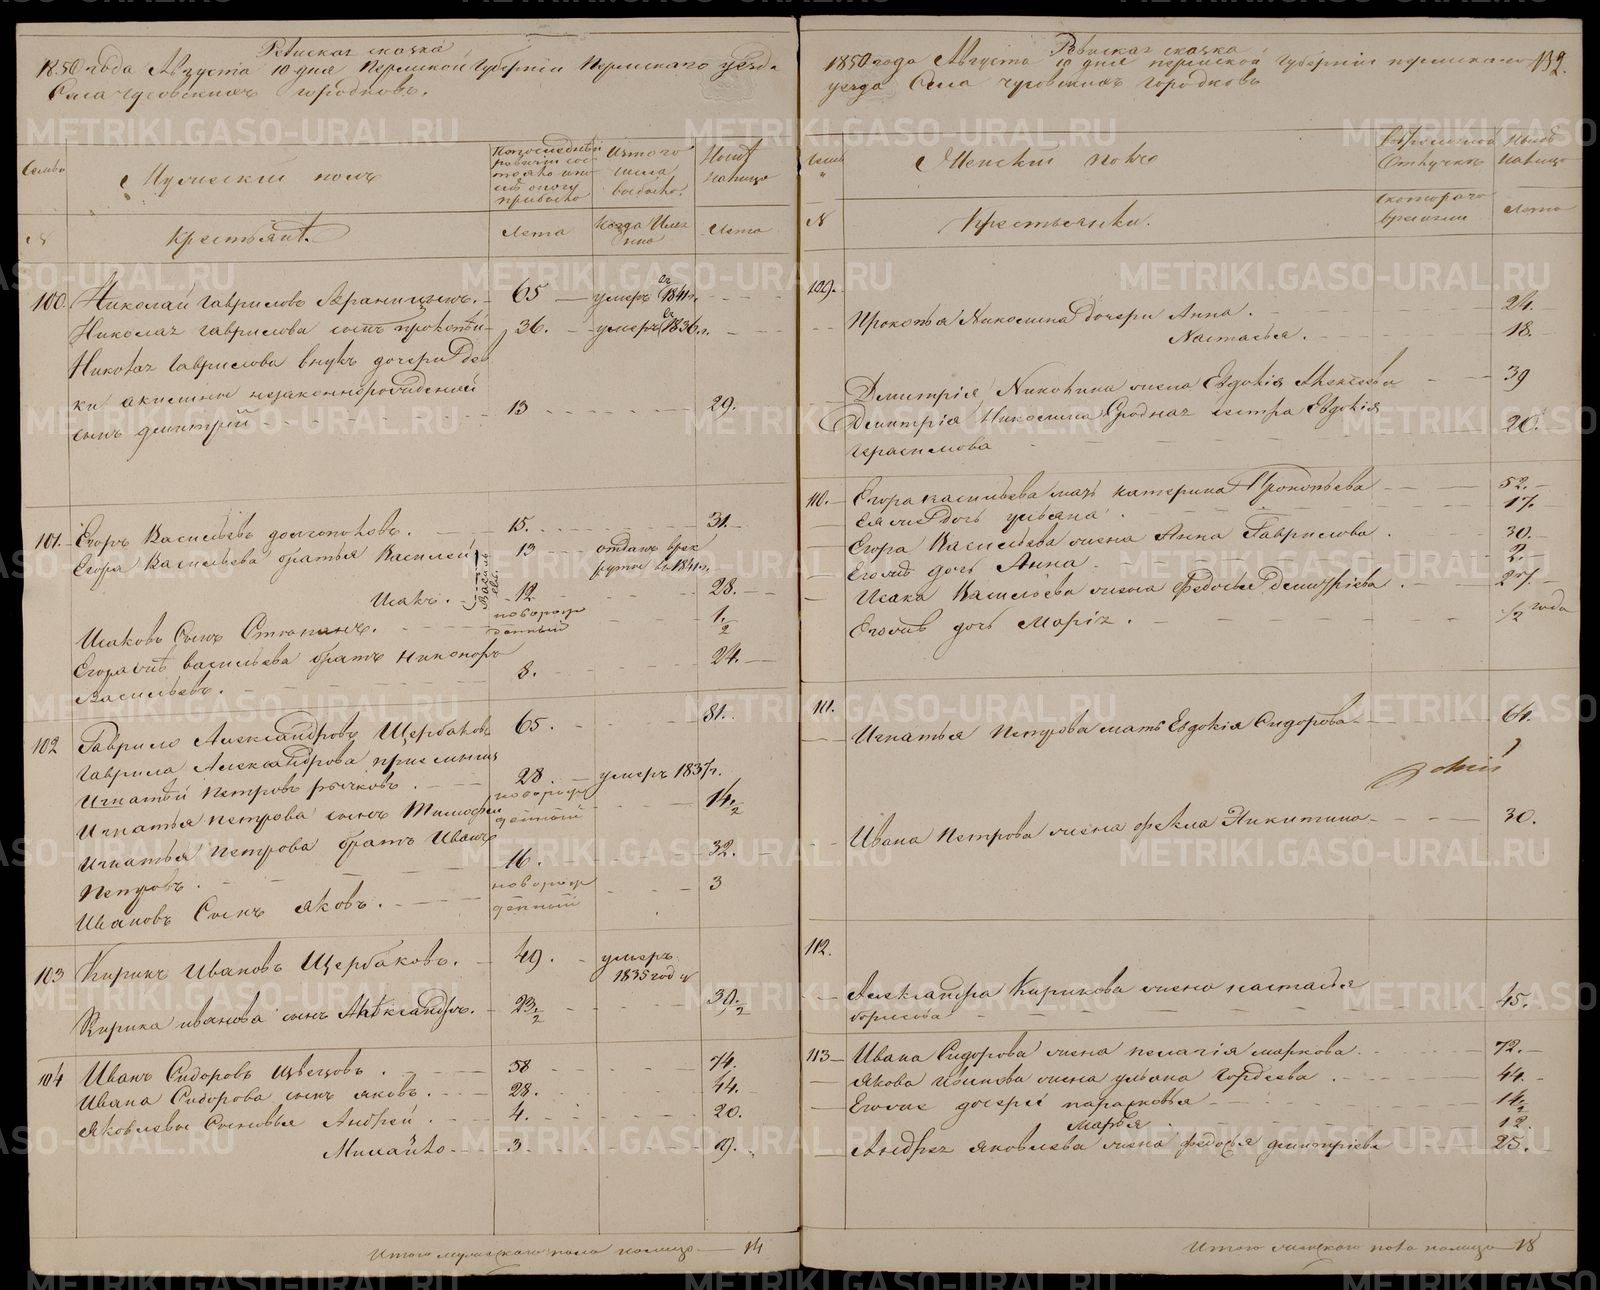 Ревиская сказка
1850 года Августа 10 дня Пермской Губернии Пермскаго уезда
Села Чусовскихъ Городковъ.
Семьи
Мужеский полъ
Изтого числа выбыло.
Ныне налицо
№
Крестьяне.
Лета
Когда Имянно
Лета
100. Николай Гавриловъ 65 умеръ 1841 г.
Николая Гаврилова сынъ Прокопей 36. умеръ 1836 г.
Николая Гаврилова внукъ дочери
незаконнорожденной
сынъ Дмитрий 13 29.
101. Егоръ Васильевъ Долгополовъ. 15. 31.
Егора Васильева братья Василей 13 отданъ врекруты в 1841 г.
Исакъ. Васильевы. 12 28.
Исаковъ Сынъ Степанъ. новорожденный 1/2
Егора Васильева братъ Никоноръ
Васильевъ. 8. 24.
102 Гаврило Александровъ Щербаковъ 65. 81.
Гаврила Александрова приемышъ
Игнатей Петровъ Рычковъ. 28. умеръ 1837 г.
Игнатья Петрова сынъ Тимофей новорожденный 14 1/2
Игнатья Петрова братъ Иванъ
Петровъ. 16. 32.
Ивановъ Сынъ Яковъ. новорожденный 3
103 Кирикъ Ивановъ Щербаковъ. 49. умеръ 1835 года
Кирика Иванова сынъ Александръ. 23 1/2 39 1/2
104 Иванъ Сидоровъ Цвецовъ. 58 74.
Ивана Сидорова сынъ Яковъ. 28. 44.
Яковлевы Сыновья Андрей 4. 20.
Михайло 3 19.
Итого мужескаго пола налицо 14
Ревиская сказка
1850 года Августа 10 дня Пермской Губернии Пермскаго 132.
уезда Села Чусовскихъ Городковъ
Семьи
Женский полъ
Ныне налицо
№
Крестьянки.
Лета
109. Прокопья Николаева Дочери Анна. 24.
Настасья. 18.
Дмитрия Николаева жена Евдокия Алексеева 39
Дмитрия Николаева Сродная сестра Евдокия
Герасимова 20.
110. Егора Васильева мать Катерина Прокопьева 52.
Ея дочь Ульяна. 17.
Егора Васильева жена Анна Гаврилова. 30.
Еговы дочь Анна. 2.
Исака Васильева жена Федосья Дмитриева. 27.
Еговы дочь Мария. 1/2 года
111. Игнатья Петрова мать Евдокия Сидорова 64.
Ивана Петрова жена Фекла Никитина 30.
112. Александра Кирикова жена Настасья
Борисова 45.
113 Ивана Сидорова жена Пелагия Маркова. 72.
Якова Иванова жена Ульяна Гордеева. 44.
Еговые дочери Парасковья 14 1/2
Марья. 12.
Андрея Яковлева жена Федосья Дмитриева 25.
Итого женскаго пола налицо 18
METRIKI.GASO-URAL.RU